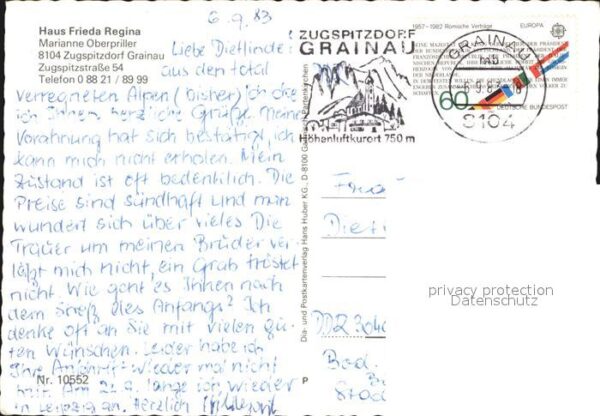 6.9.83
Haus Frieda Regina
Marianne Oberpriller
8104 Zugspitzdorf Grainau
Zugspitzstraße 54
Telefon 0 88 21 / 89 99
Liebe Dietlinde!
aus den total
verregneten Alpen (bisher) ich
ich Ihnen herzliche Grüße. Meine
Vorahnung hat sich bestätigt, ich
kann mich nicht erholen. Mein
Zustand ist oft bedenklich. Die
Preise sind sündhaft und man
wundert sich über vieles. Die
Trauer um meinen Brüder ver
läßt mich nicht, ein Grab tröstet
nicht. Wie geht es Ihnen nach
dem Streß des Anfangs? Ich
denke oft an Sie mit vielen gu-
ten Wünschen. Leider habe ich
Ihre Anschrift wieder mal nicht
Am lange ich wieder
in Leipzig an. Herzlich
Nr. 10552
ZUGSPITZDORF
GRAINAU
Höhenluftkurort 750 m
GRAINAU
8104
1957-1982 Römische Verträge
EUROPA
60
DEUTSCHE BUNDESPOST
Dia- und Postkartenverlag Hans Huber KG., D-8100 Garmisch-Partenkirchen
P
Diet
DDR
Bad.
privacy protection
Datenschutz